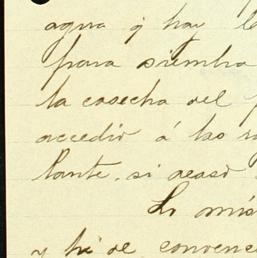 agua y hay
para siembra
la cosecha del
accedió á las
tante, si acaso
Lo mis
y hé de convenc